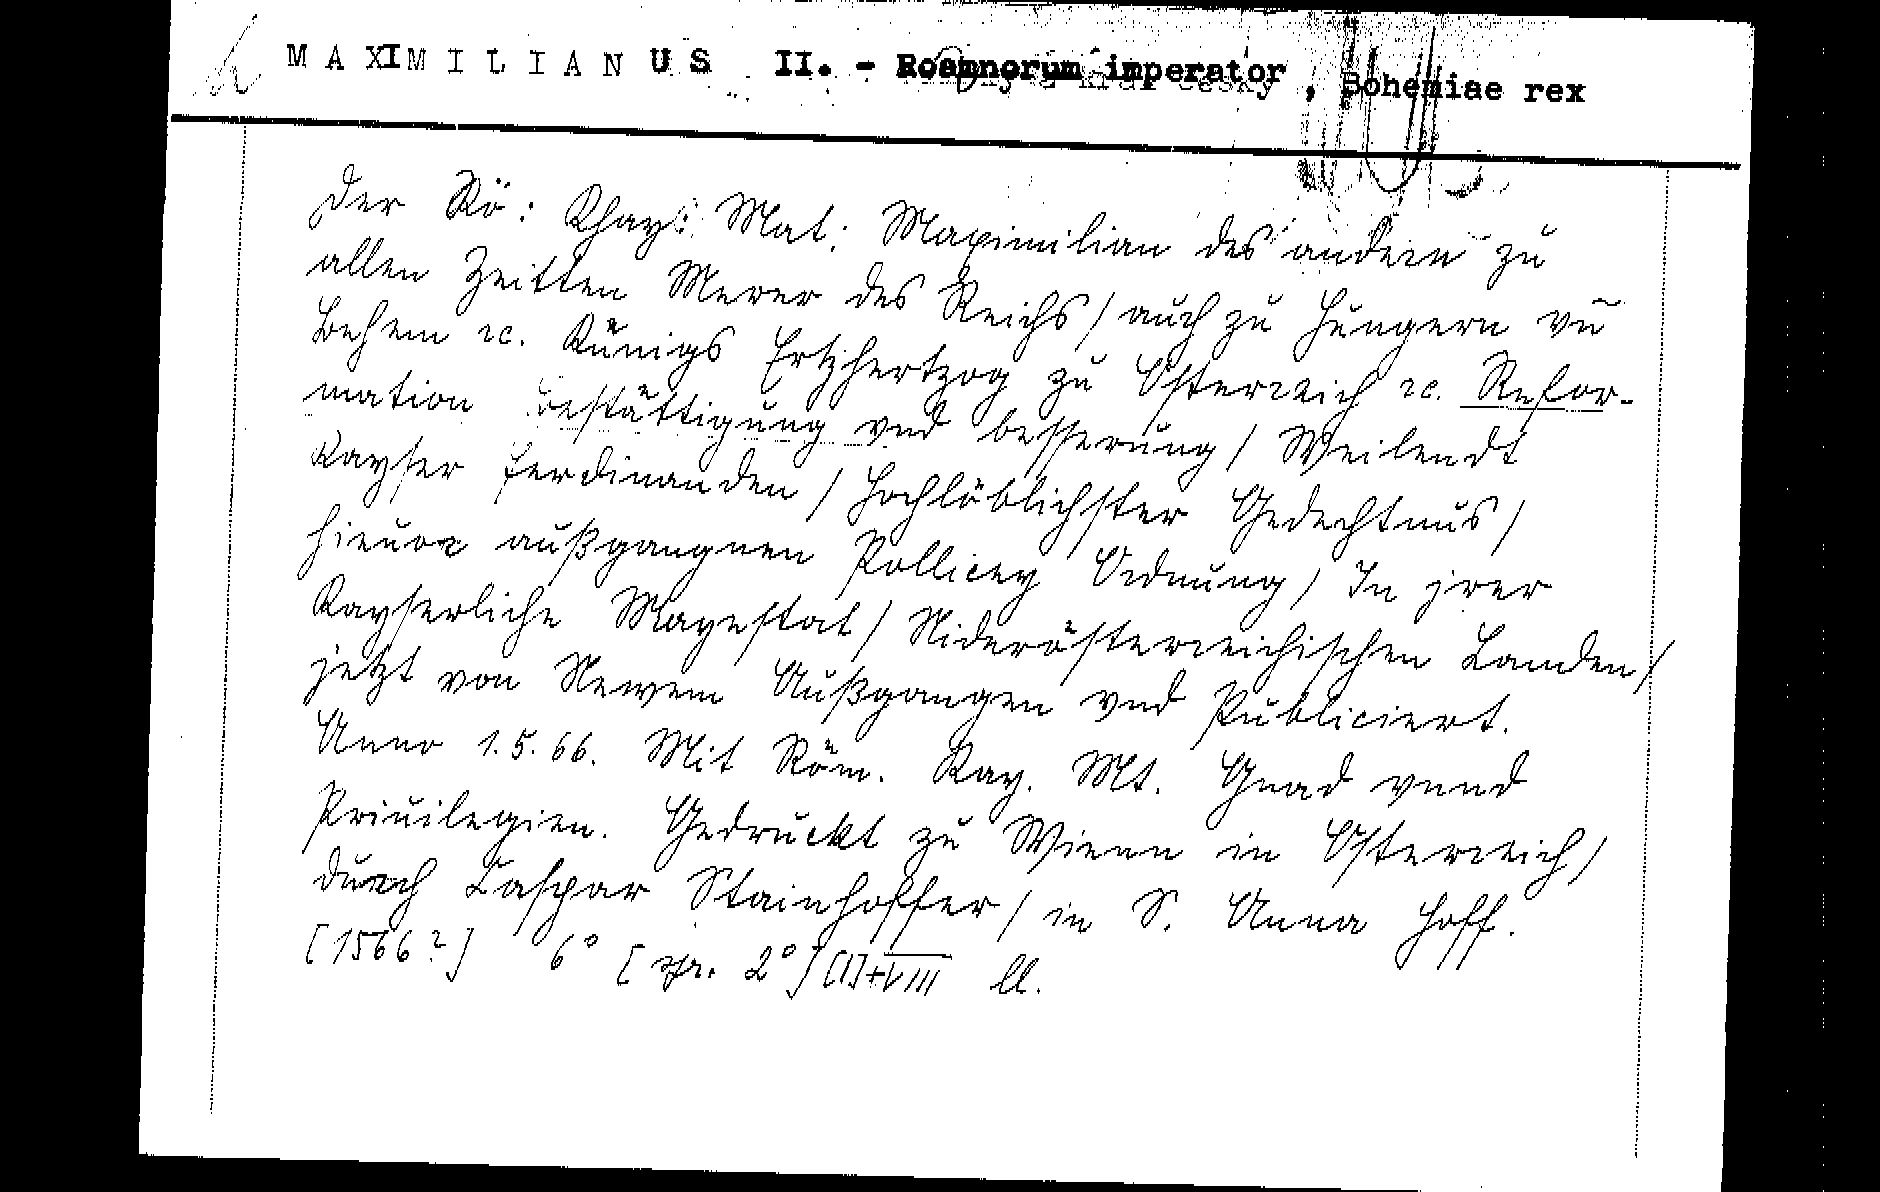 MAXIMILIANUS II. - Roamnorum imperator , Bohemiae rex
Der Rö: Khay: Mat: Maximilian des andern zu
allen Zeitten Merer des Reichs / auch zu Hungern vn̄
Behem ꝛc. Künigs Ertzhertzog zu Österreich ꝛc. Refor-
mation Bestättigung vnd besserung / Weilendt
Kayser Ferdinanden / Hochlöblichster Gedechtnus /
hieuor außgangnen Pollicey Ordnung / In jrer
Kayserliche Mayestat / Niderösterreichischen Landen /
jetzt von Newem Außgangen vnd Publiciert.
Anno 1.5.66. Mit Röm. Kay. Mt. Gnad vnnd
Priuilegien. Gedruckt zu Wienn in Österreich /
durch Caspar Stainhoffer / in S. Anna Hoff.
[1566?] 6° [spr. 2°] [I]+VIII ll.